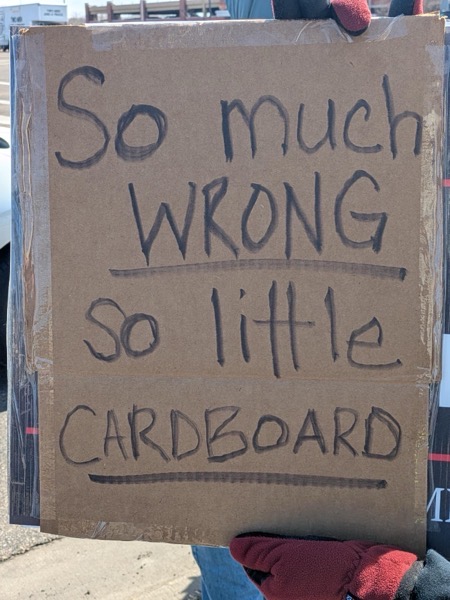 So much
WRONG
so little
CARDBOARD